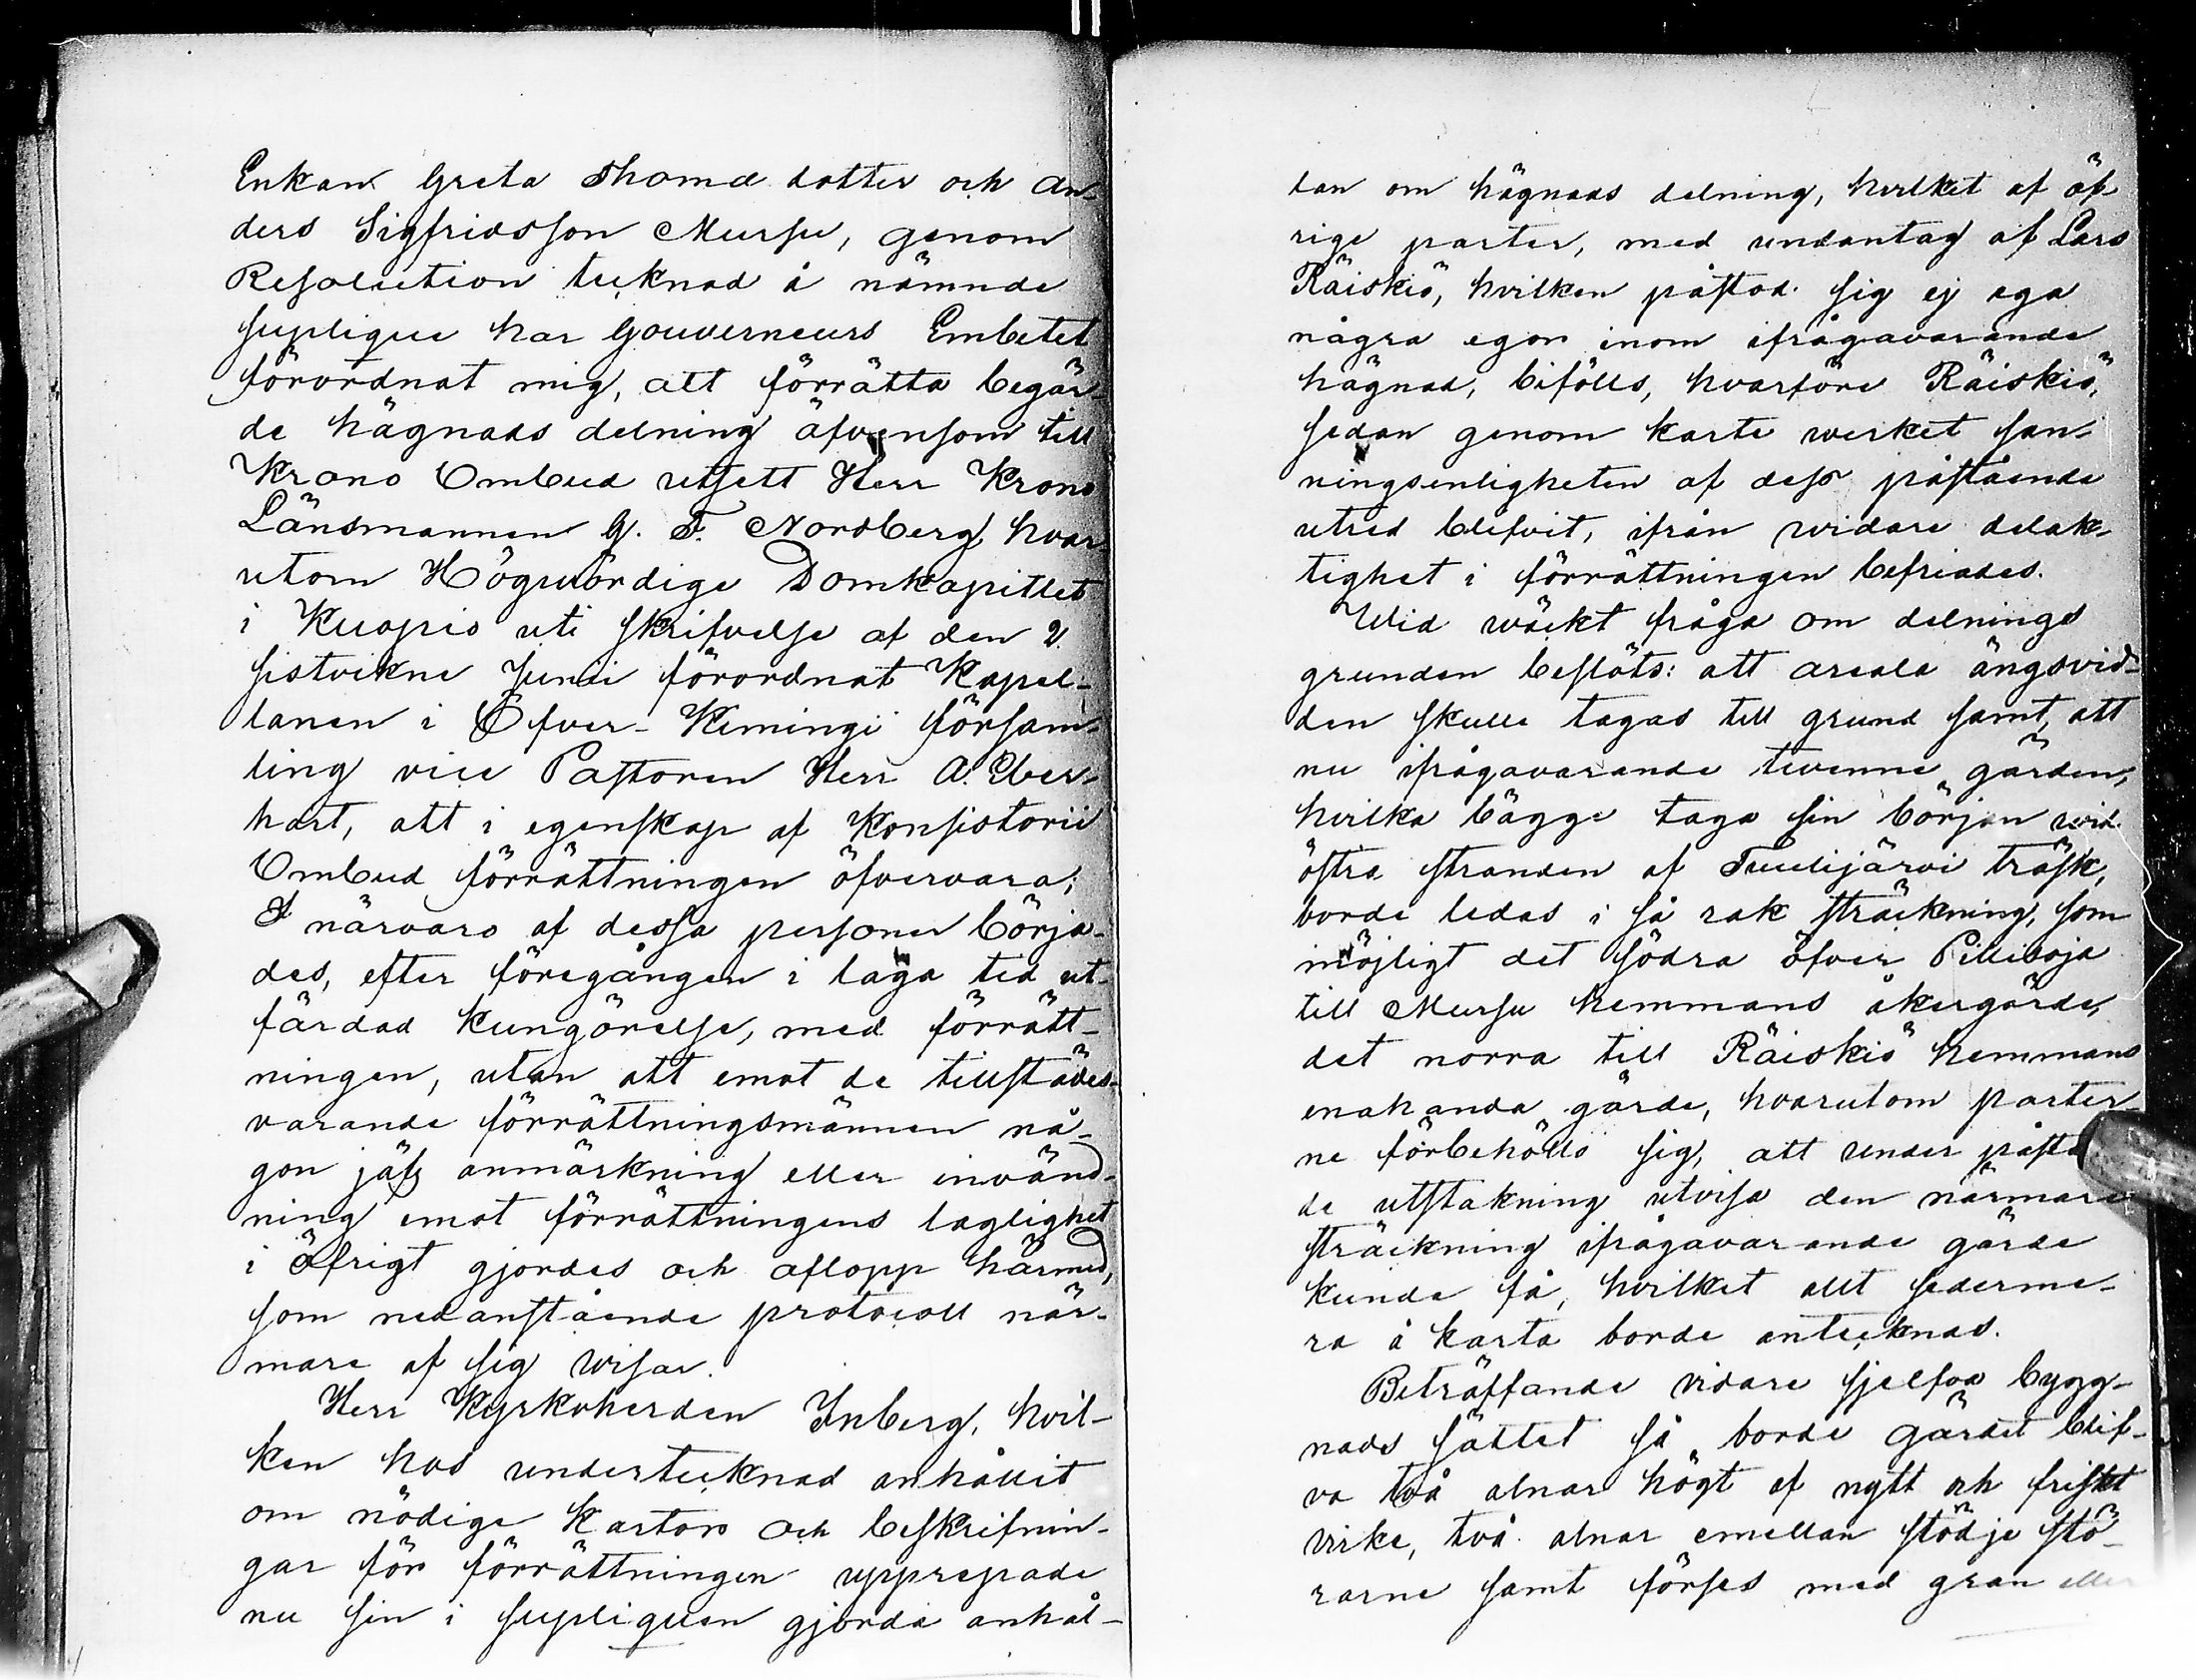 Enkan Greta Thomæ dotter och An-
ders Sigfridsson Mursu, genom
Resolution tecknad å nämnde
suplique har Gouverneurs Embetet
förordnat mig, att förrätta begär-
de hägnads delning äfvensom till
Krono Ombud utsett Herr Krono
Länsmannen G. F. Nordberg, hvar-
utom Högwördige Domkapitlet
i Kuopio uti skrifvelse af den 2
sistvikne Junii förordnat Kapel-
lanen i Öfver-Kiminge försam-
ling vice Pastoren Herr A. Eber-
hart, att i egenskap af Konsistorii
Ombud förrättningen öfvervara;
I närvaro af dessa personer börja-
des, efter föregången i laga tid ut-
färdad kungörelse, med förrätt-
ningen, utan att emot de tillstädes-
varande förrättningsmännen nå-
gon jäfs anmärkning eller invänd-
ning emot förrättningens laglighet
i öfrigt gjordes och aflopp härmed,
som nedanstående protocoll när-
mare af sig wisar.
Herr Kyrkoherden Inberg, hvil-
ken hos undertecknad anhållit
om nödige kartor och beskrifnin-
gar för förrättningen upprepade
nu sin i supliquen gjorde anhål-
lan om hägnads delning, hvilket af öf-
rige parter, med undantag af Lars
Räiskiö, hvilken påstod sig ej ega
några egor inom ifrågavarande
hägnad, bifölls, hvarföre Räiskiö,
sedan genom karte werket san-
ningsenligheten af dess påstående
utred blefvit, ifrån widare delak-
tighet i förrättningen befriades.
Wid wäckt fråga om delnings
grunden beslöts: att areala ängsvid-
den skulle tagas till grund samt, att
nu ifrågavarande tvenne gärden,
hvilka bägge taga sin början wid
östra stranden af Tuulijärvi träsk,
borde ledas i så rak sträckning, som
möjligt det södra öfver Pilliioja
till Mursu hemmans åkergärde,
det norra till Räiskiö hemmans
enahanda gärde, hvarutom parter-
ne förbehöllo sig, att under
de utstakning utvisa den närmare
sträckning ifrågavarande gärde
kunde få, hvilket allt sederme-
ra å karta borde antecknas.
Beträffande vidare sjelfva bygg-
nads sättet så borde gärdet blif-
va två alnar högt af nytt och friskt
virke, två alnar emellan stödje stö-
rarne samt förses med gran eller